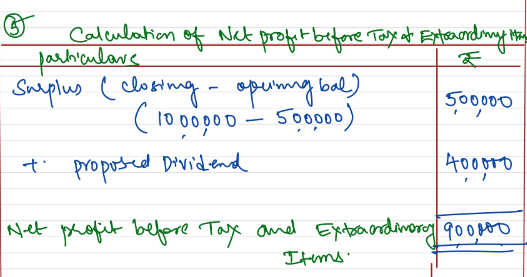 ③ Calculation of Net profit before Tax & Extraordinary Items
particulars ₹
Surplus (closing - opening bal) 500,000
(1000,000 - 500,000)
+ proposed Dividend 400,000
Net profit before Tax and Extraordinary 900,000
Items.